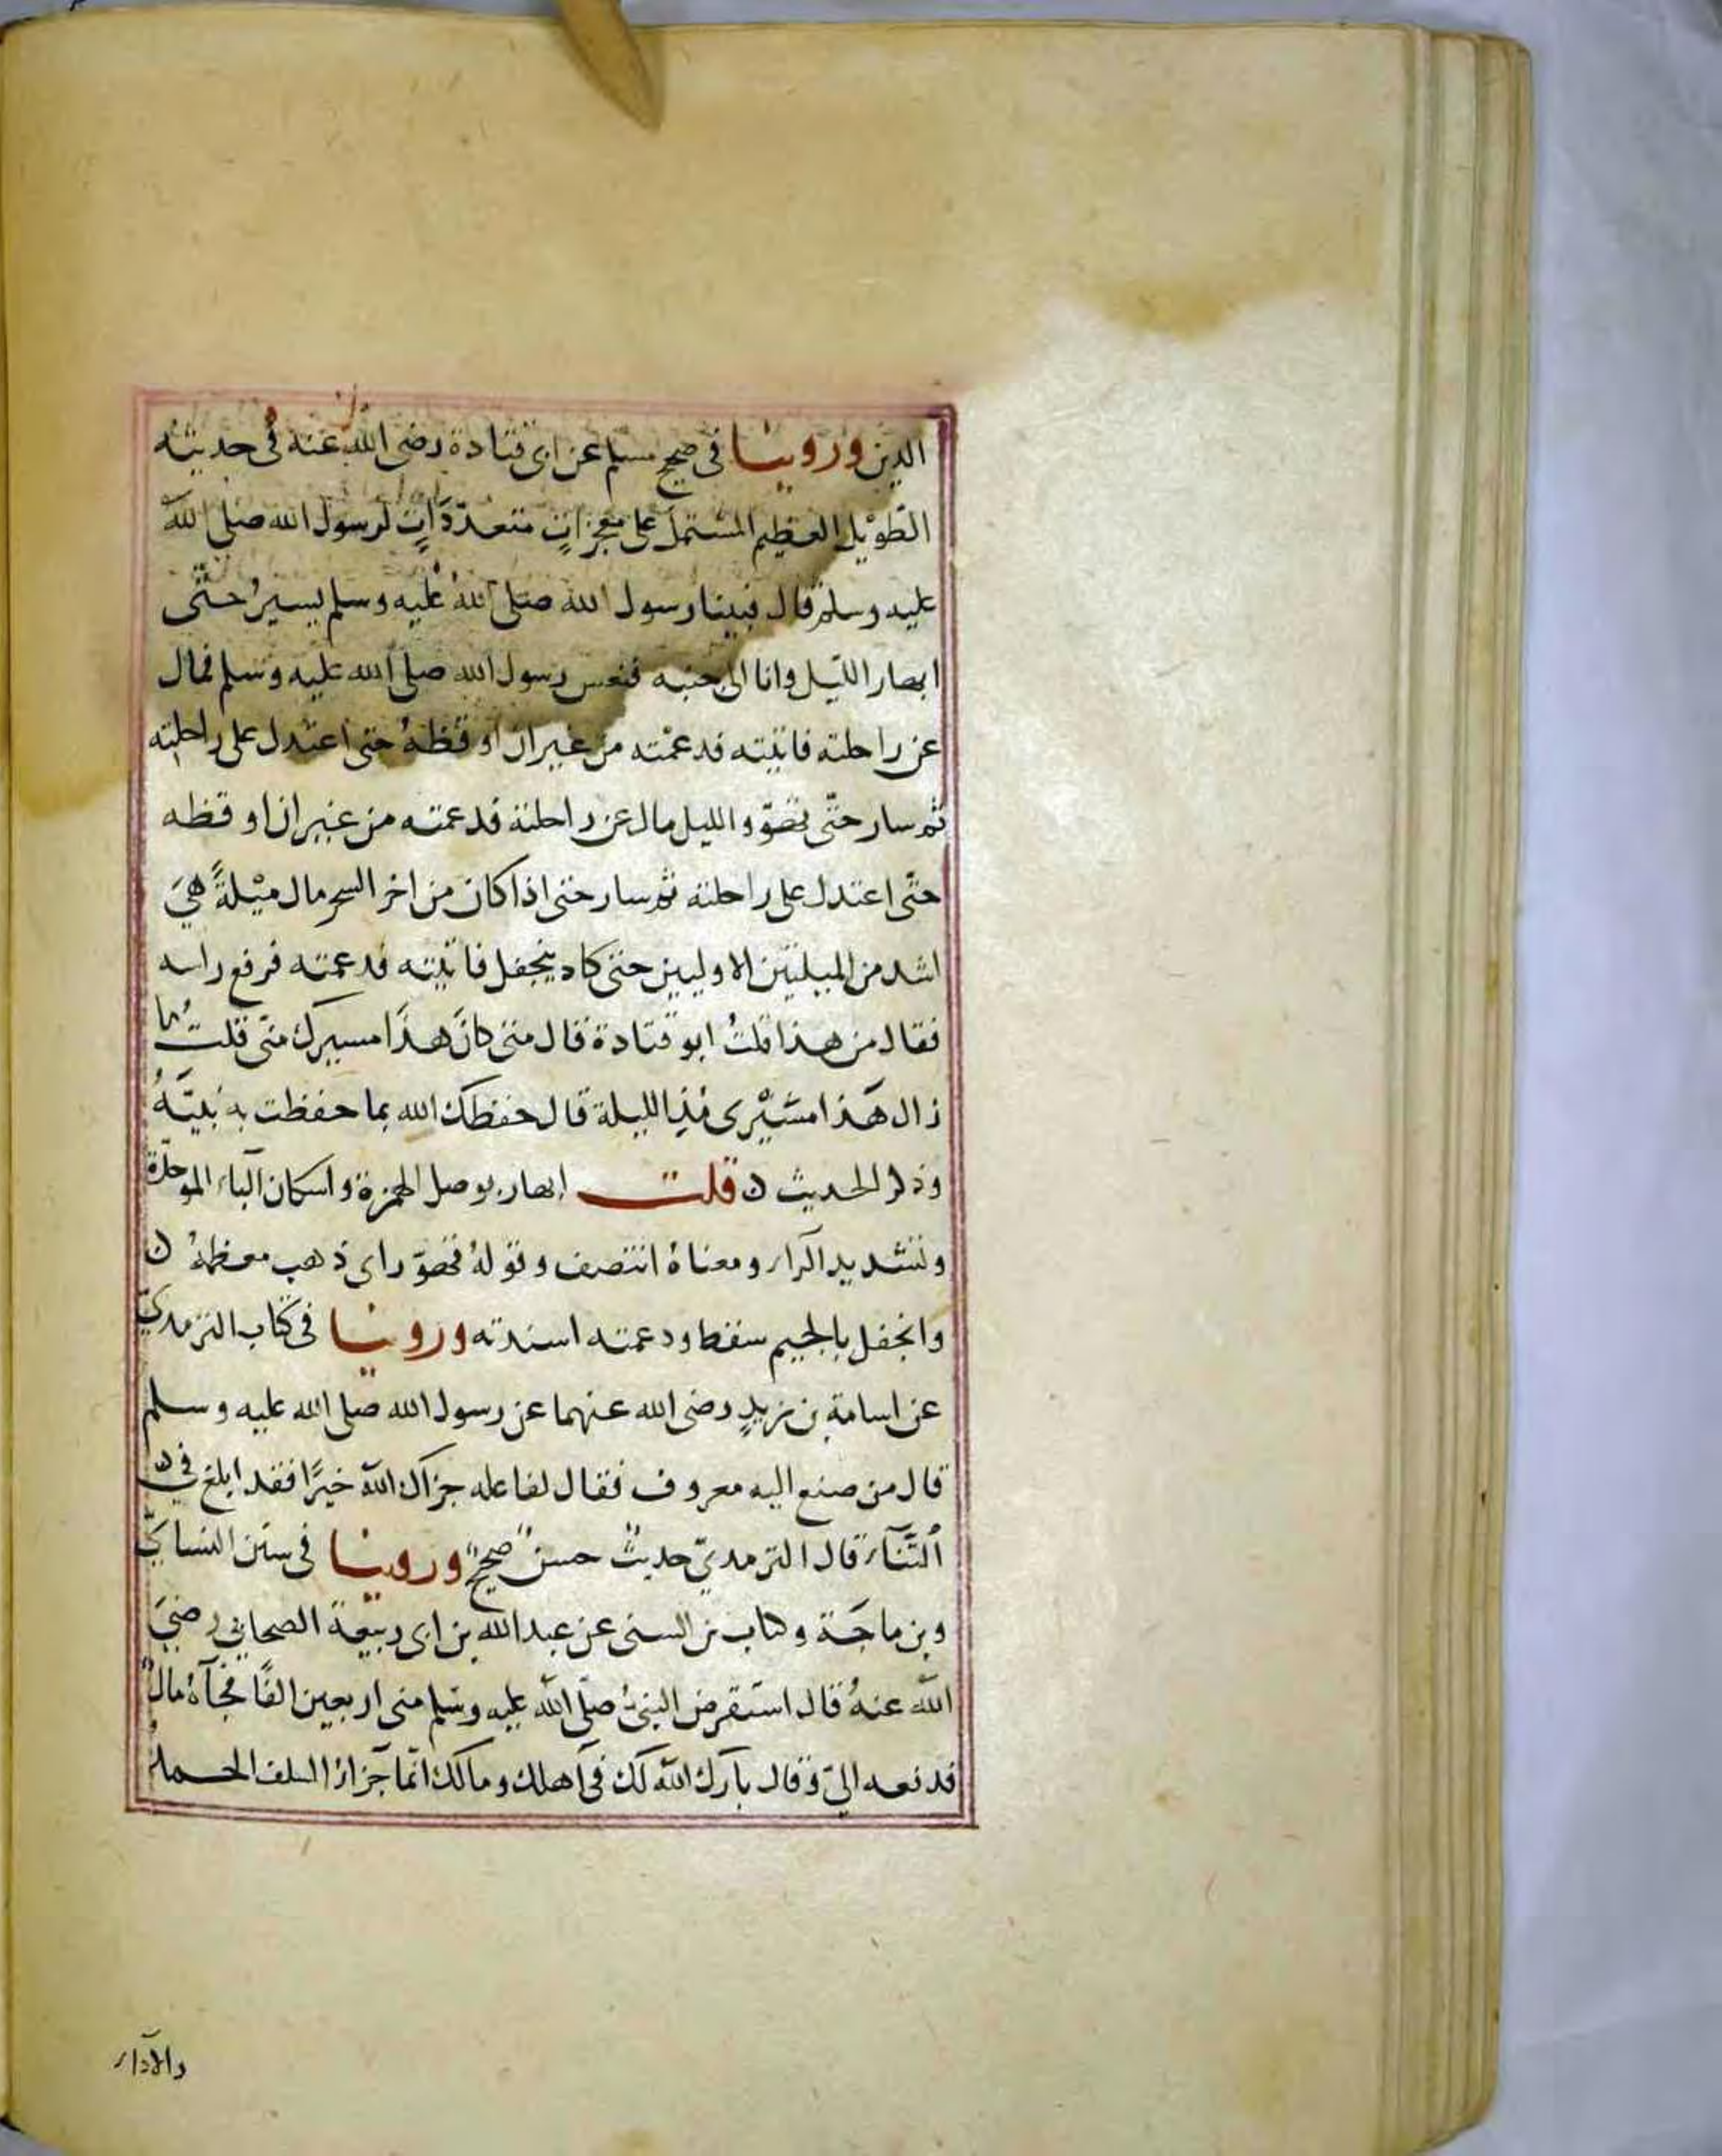 الدين وروينا فى صحيح مسلم عن ابى قتادة رضى الله عنه فى حديثه
الطّويل العظيم المشتمل على معجزاتٍ متعدّدَاتٍ لرسول الله صلى الله
عليه وسلم قال فبينا رسول الله صلى اللهُ عليه وسلم يسيرُ حتّى
ابهار الليل وانا الى جنبه فنعس رسول الله صلى الله عليه وسلم فمال
عن راحلته فاتيته فدعمْته من غير ان اوقظهُ حتى اعتدل على راحلته
ثم سار حتّى تهوّر الليل مال عن راحلته فدعمته من غير ان اوقظه
حتّى اعتدل على راحلته ثم سار حتى اذا كان من اخر السحر مال ميْلةً هيَ
اشد من الميلتين الاوليين حتى كاد ينجفل فاتيته فدعمته فرفع راسه
فقال من هذا قلتُ ابو قتادة قال متى كانَ هذَا مسيرك منّى قلتُ ما
زال هَذا مسَيْرى منذ الليلة قال حفظك الله بما حفظت به نبيّهُ
وذكر الحديث ن قلت ابهار بوصل الهمزة واسكان البآء الموحدّة
وتشديد الرآء ومعناهُ انتصف وقولهُ تهوّر اى ذهب معظمهُ ن
وانجفل بالجيم سقط ودعمته اسندته وروينا فى كتاب الترمدىّ
عن اسامة بن زيدٍ رضى الله عنهما عن رسول الله صلى الله عليه وسلم
قال من صنع اليه معروف فقال لفاعله جزاك اللهُ خيرًا فقد ابلغ فى ن
الثَّنآء قال الترمدىّ حديثٌ حسنٌ صحيحٌ وروينا فى سنن النساىّ
وبن ماجَة وكتاب بن السنى عن عبد الله بن ابى ربيعة الصحابى رضىَ
الله عنهُ قال استقرض النبىُّ صلّى الله عليه وسَلم منى اربعين الفًا فجآءهُ مالٌ
فدفعه الىّ وقال بارك الله لك فى اهلك ومالك انّما جزاءُ السلف الحمدُ
والادآء